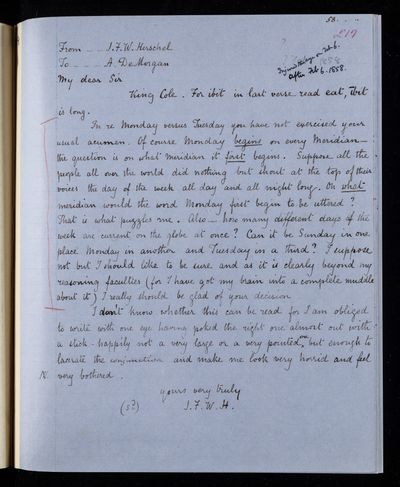 58.
£17
From _ _ J.F.W. Herschel
To _ _ _ A. De Morgan
after Feb 6. 1858.
My dear Sir
King Cole. For ibit in last verse read eat, ibit
is long.
In re Monday versus Tuesday you have not exercised your
usual acumen. Of course Monday begins on every Meridian _
the question is on what meridian it first begins. Suppose all the
people all over the world did nothing but shout at the top of their
voices the day of the week all day and all night long. On what
meridian would the word Monday first begin to be uttered?
That is what puzzles me. Also _ how many different days of the
week are current on the globe at once? Can it be Sunday in one
place Monday in another and Tuesday in a third? I suppose
not but I should like to be sure and as it is clearly beyond my
reasoning faculties (for I have got my brain into a complete muddle
about it) I really should be glad of your decision
I don't know whether this can be read for I am obliged
to write with one eye having poked the right one almost out with
a stick - happily not a very large or a very pointed one, but enough to
lacerate the conjunctiva and make me look very horrid and feel
very bothered.
yours very truly
(s?) J.F.W.H.